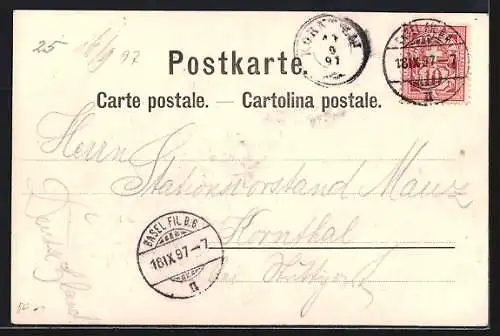 25 16/9 97
KORNTHAL
17
9
97
BASEL FIL. B.B.
16 IX 97 - 7
II
10
Postkarte.
Carte postale. — Cartolina postale.
Herrn
Stationsvorstand Mauz
Kornthal
bei Stuttgart
Deutschland
BASEL FIL. B.B.
16 IX 97 - 7
II